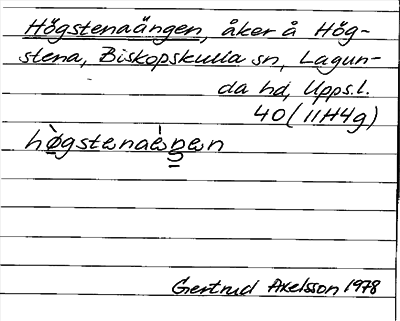 Högstenaängen, åker å Hög-
stena, Biskopskulla sn, Lagun-
da hd, Upps.l.
40 (11H4g)
Gertrud Axelsson 1978